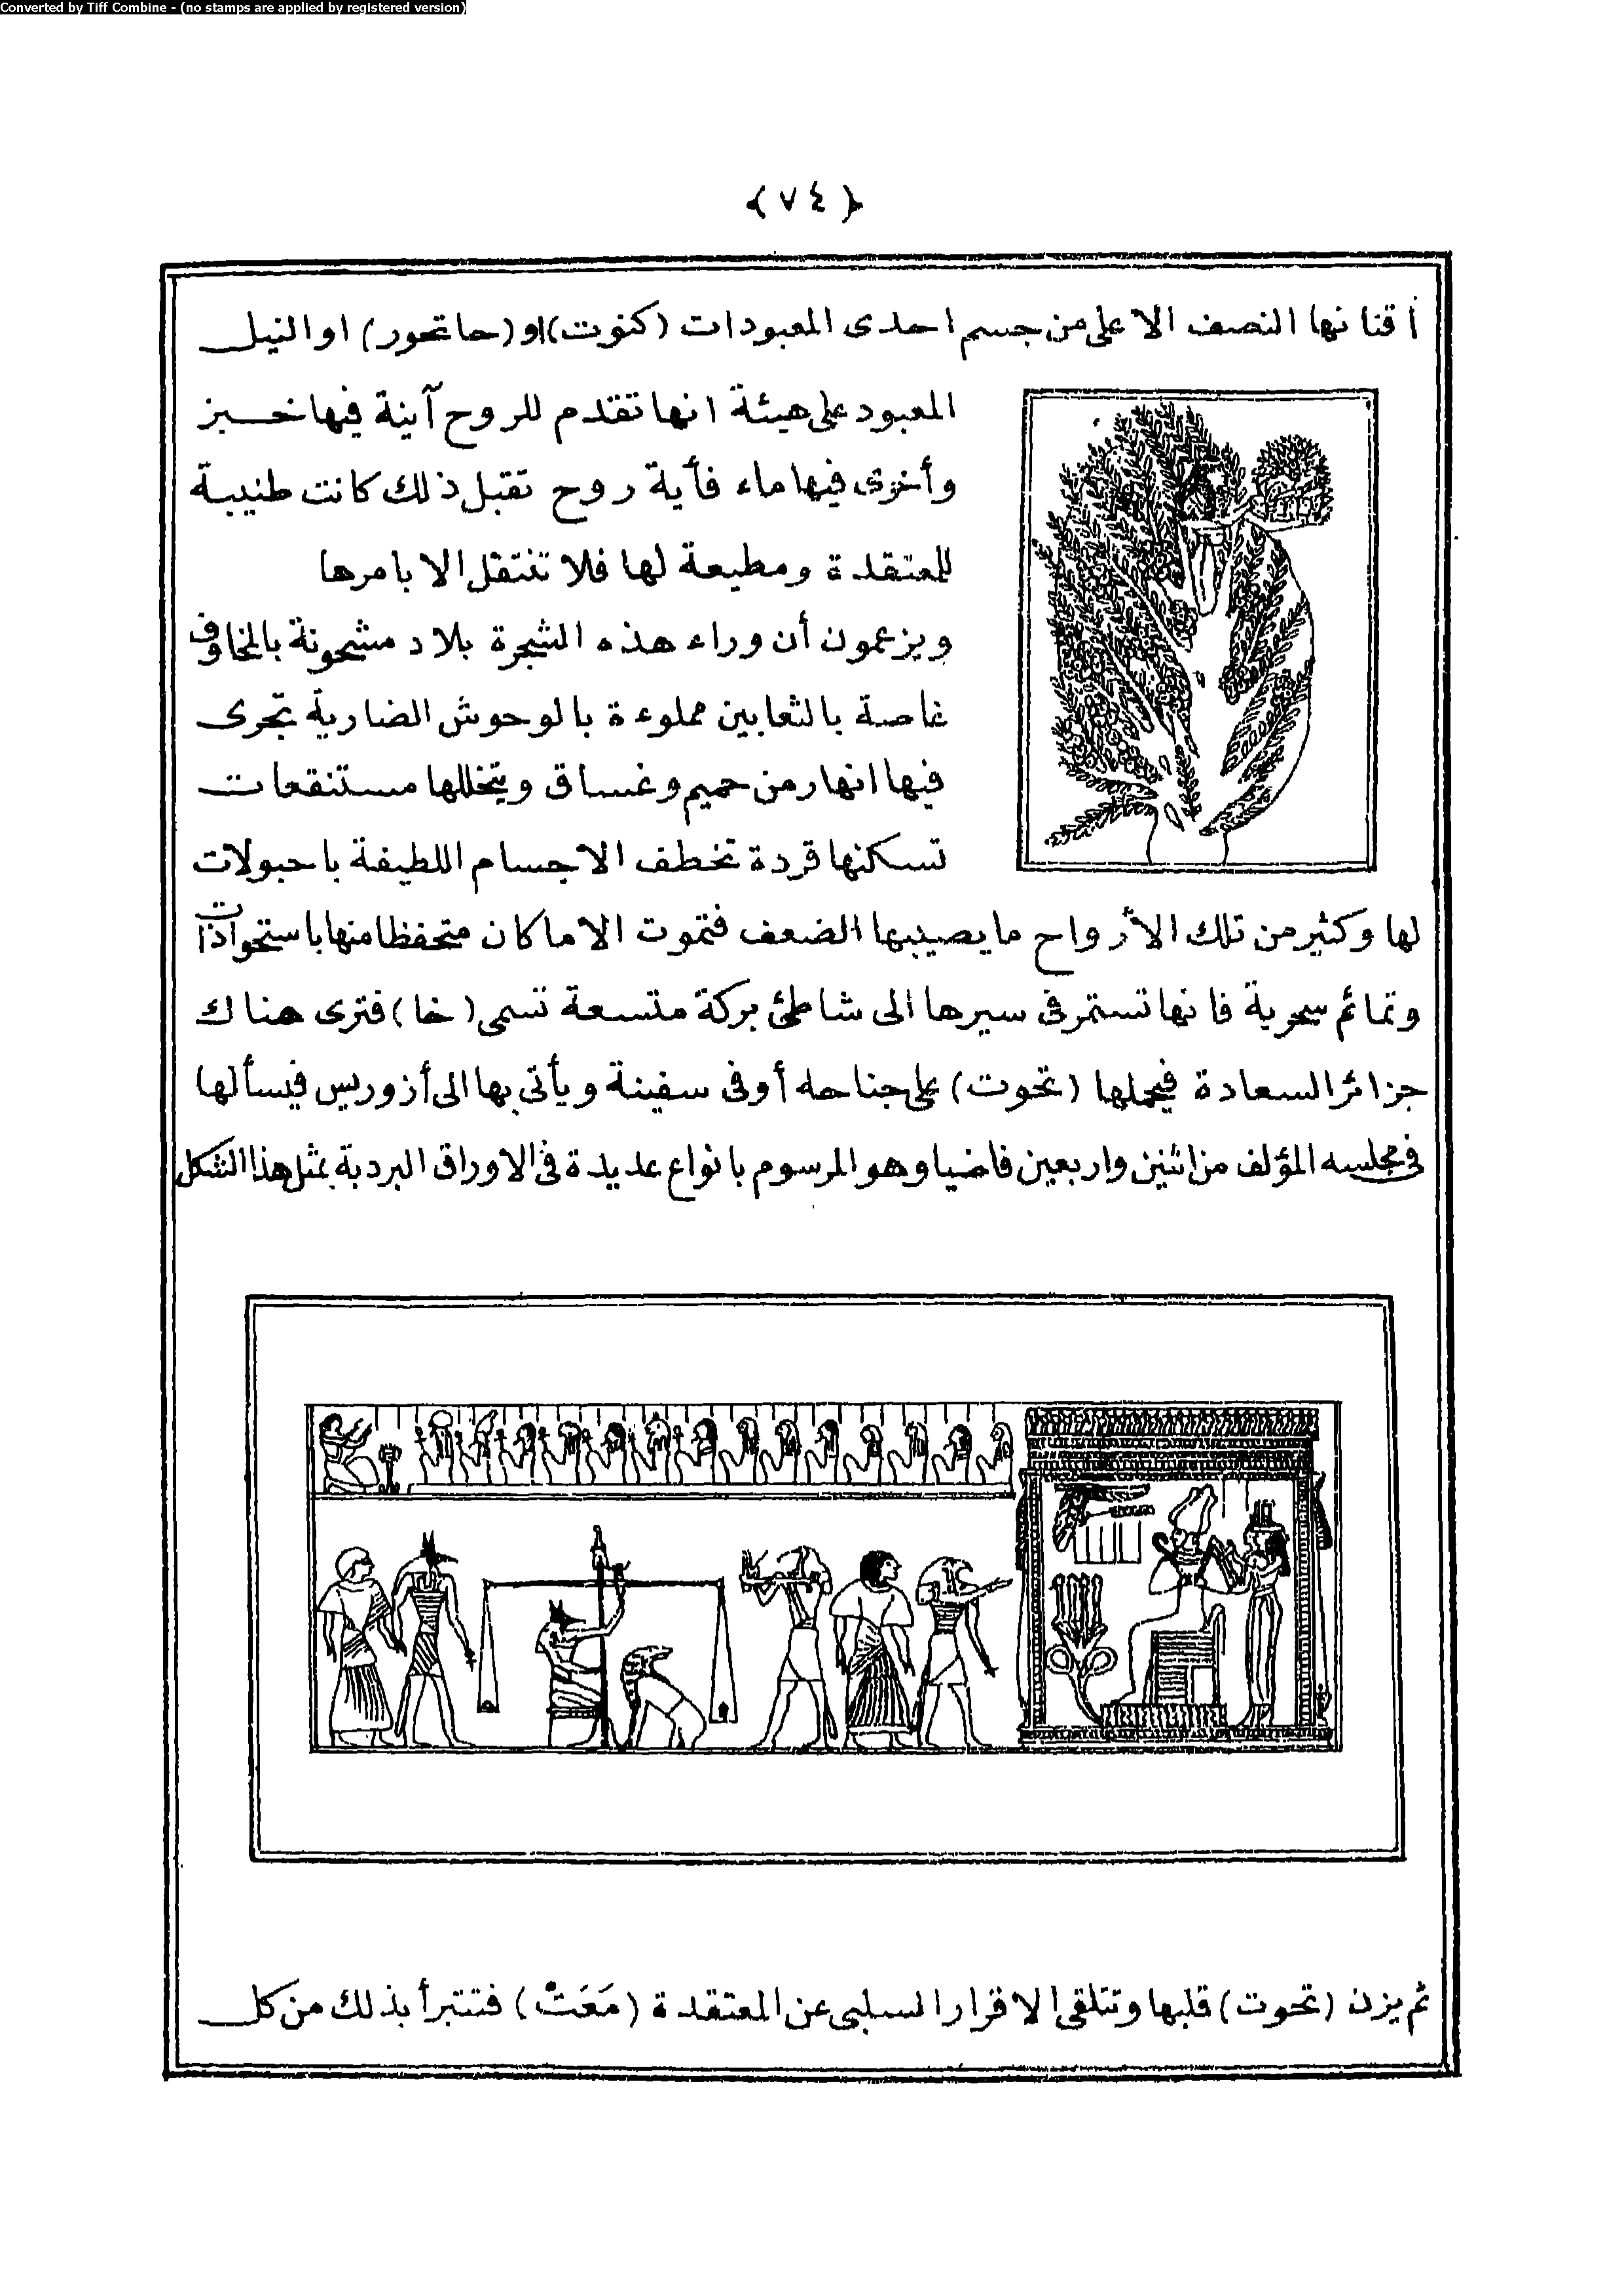 Converted by Tiff Combine - (no stamps are applied by registered version)
﴿٧٤﴾
أقنانها النصف الاعلى من جسم احدى المعبودات (كنوت) او (حاتحور) او النيل
المعبود على هيئة انها تقدم للروح آنية فيها خبز
وأخرى فيها ماء فأية روح تقبل ذلك كانت طنيبة
للمعتقدة ومطيعة لها فلا تنتقل الا بامرها
ويزعمون أن وراء هذه الشجرة بلاد مشحونة بالمخاوف
غاصة بالثعابين مملوءة بالوحوش الضارية تجرى
فيها انهار من حميم وغساق ويتخللها مستنقعات
تسكنها قردة تخطف الاجسام اللطيفة باحبولات
لها وكثير من تلك الأرواح ما يصيبها الضعف فتموت الا ما كان متحفظا منها باستحواذات
وتمائم سحرية فانها تستمر فى سيرها الى شاطئ بركة متسعة تسمى (خا) فترى هناك
جزائر السعادة فيحملها (تحوت) على جناحه أو فى سفينة ويأتى بها الى أزوريس فيسألها
فى مجلسه المؤلف من اثنين واربعين قاضيا وهو المرسوم بانواع عديدة فى الاوراق البردية بمثل هذا الشكل
ثم يزن (تحوت) قلبها وتتلقى الاقرار السلبى عن المعتقدة (مَعَتْ) فتتبرأ بذلك من كل